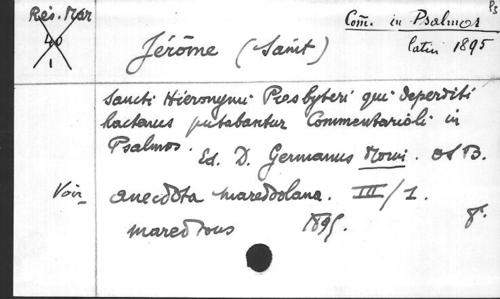 Rés. Mar
40
1
Com. in Psalmos Ps
latin 1895
Jérôme (Saint)
Sancti Hieronymi Presbyteri qui deperditi
hactenus putabantur Commentarioli in
Psalmos.
Ed. D. Germanus Morin. OSB.
Voir
anecdota maredsolana. III/1.
maredsous 1895. 8°.